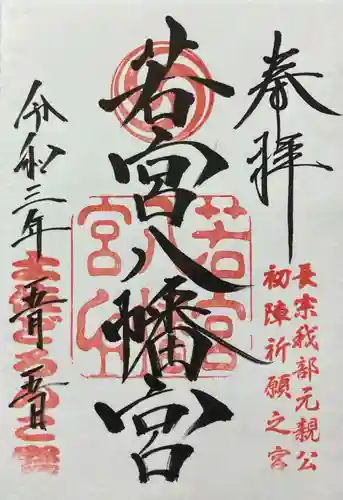 奉拝
長宗我部元親公
初陣祈願之宮
若宮八幡宮
令和三年五月五日